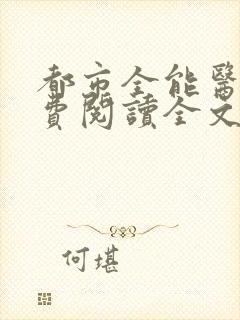 都市全能醫
費閱讀全文
何堪